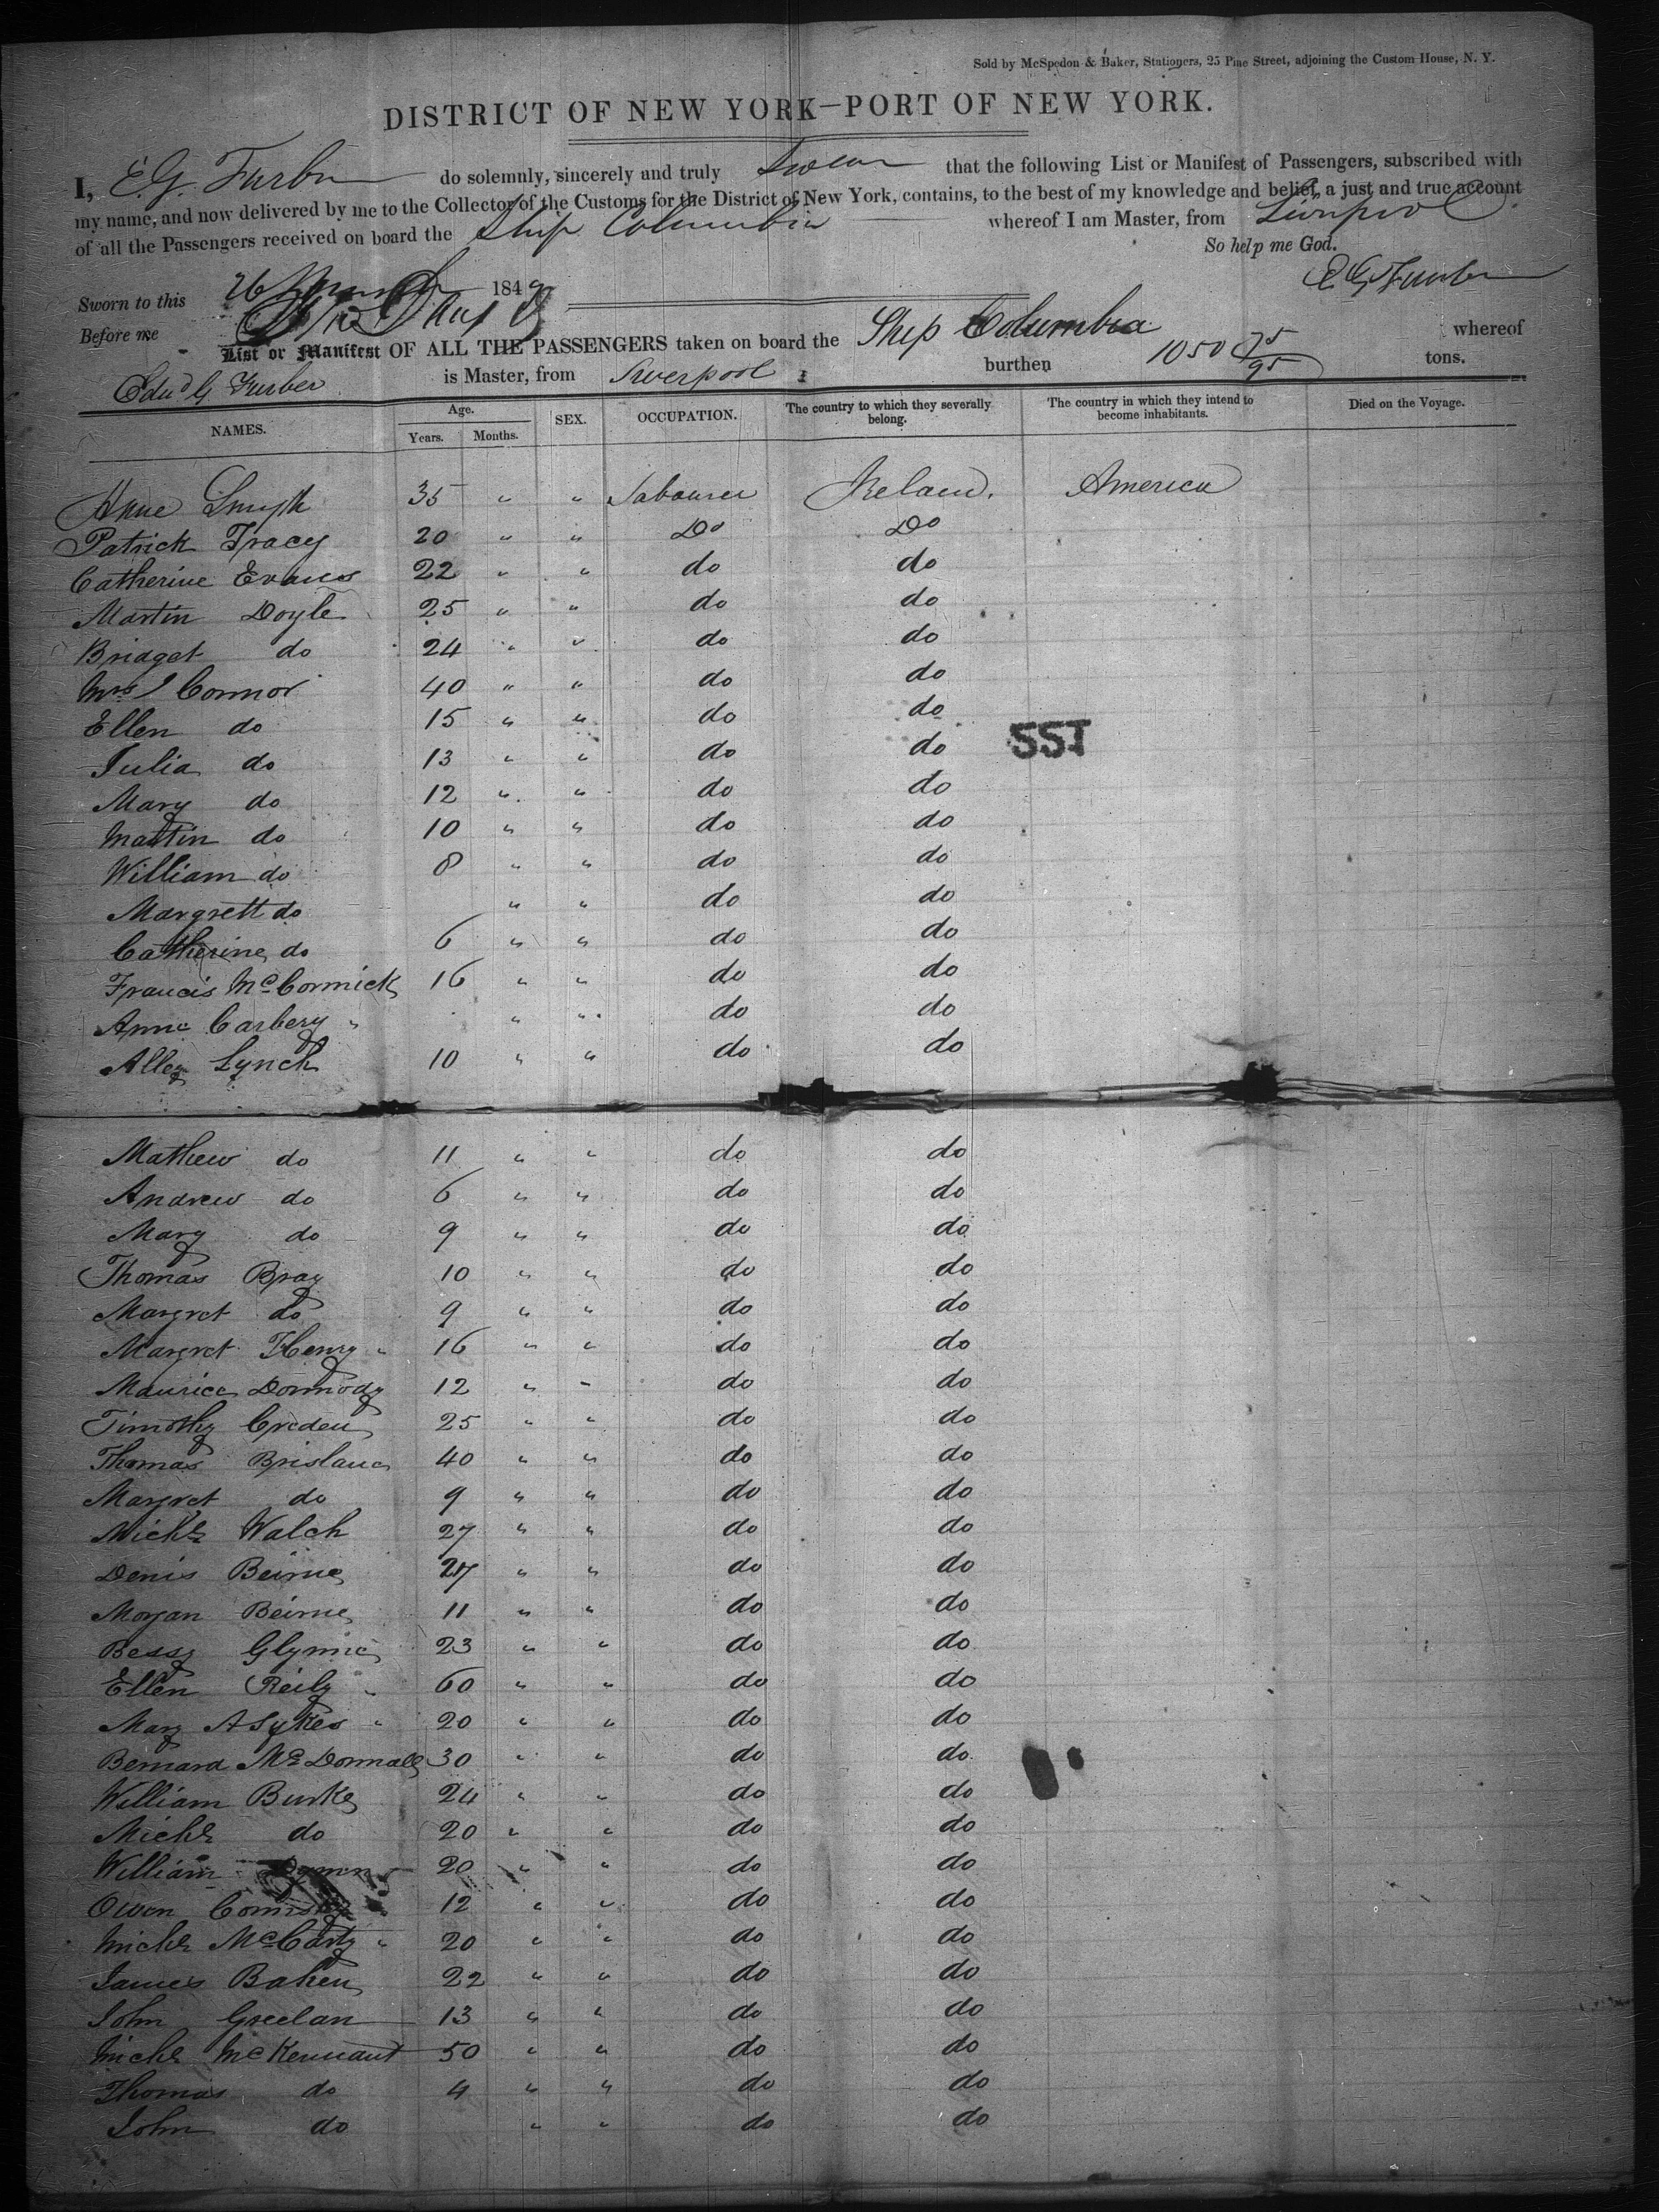 Sold by McSpedon & Baker, Stationers, 25 Pine Street, adjoining the Custom House, N. Y.
DISTRICT OF NEW YORK—PORT OF NEW YORK.
I, E. G. Furber do solemnly, sincerely and truly swear that the following List or Manifest of Passengers, subscribed with
my name, and now delivered by me to the Collector of the Customs for the District of New York, contains, to the best of my knowledge and belief, a just and true account
of all the Passengers received on board the Ship Columbia whereof I am Master, from Liverpool
So help me God.
Sworn to this 26 March 1849 E G Furber
Before me
List or Manifest OF ALL THE PASSENGERS taken on board the Ship Columbia whereof
Edwd G Furber is Master, from Liverpool burthen 1050 75/95 tons.
NAMES. Age. Years. Months. SEX. OCCUPATION. The country to which they severally belong. The country in which they intend to become inhabitants. Died on the Voyage.
Anne Smyth 35 " " Labourer Ireland. America
Patrick Tracey 20 " " Do Do
Catherine Evans 22 " " do do
Martin Doyle 25 " " do do
Bridget do 24 " " do do
Mrs Connor 40 " " do do
Ellen do 15 " " do do
SST
Julia do 13 " " do do
Mary do 12 " " do do
Martin do 10 " " do do
William do 8 " " do do
Margrett do " " do do
Catherine do 6 " " do do
Francis McCormick 16 " " do do
Anne Carbery " " " do do
Alley Lynch 10 " " do do
Mathew do 11 " " do do
Andrew do 6 " " do do
Mary do 9 " " do do
Thomas Bray 10 " " do do
Margret do 9 " " do do
Margret Henry " 16 " " do do
Maurice Dormody 12 " " do do
Timothy Creden 25 " " do do
Thomas Brislane 40 " " do do
Margret do 9 " " do do
Michl Walch 27 " " do do
Denis Beirne 27 " " do do
Morgan Beirne 11 " " do do
Bessy Glynne 23 " " do do
Ellen Reily " 60 " " do do
Mary A Sykes " 20 " " do do
Bernard McDonnall 30 " " do do
William Burke 24 " " do do
Michl do 20 " " do do
William 20 " " do do
Owen 12 " " do do
Michl McCarty " 20 " " do do
James Baken 22 " " do do
John Greelan 13 " " do do
Michl McKennant 50 " " do do
Thomas do 4 " " do do
John do " " do do